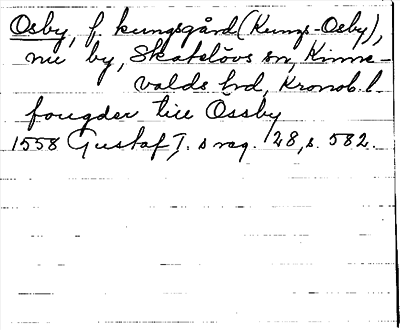 Osby, f. kungsgård (Kungs-Osby),
nu by, Skatelövs sn, Kinne-
valds hd, Kronob. l.
fougder till Ossby
1558 Gustaf I.s reg. 28, s. 582.